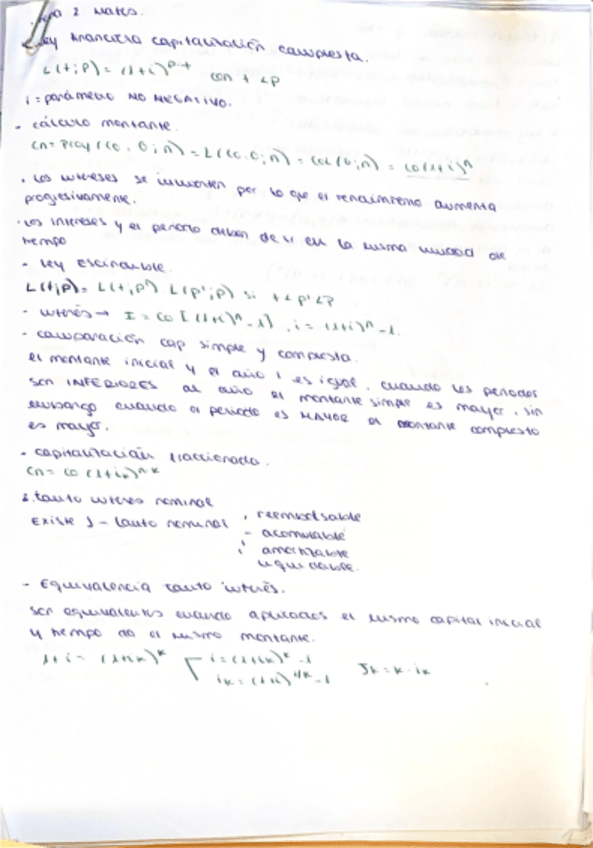 Tema 2 Mates.
Ley financiera capitalización compuesta.
L(t;p) = (1+i)^p-t con t<p
i = parámetro NO NEGATIVO.
- cálculo montante.
Cn = Proy(Co, 0;n) = L(Co, 0;n) = Co L(0;n) = Co(1+i)^n
. Los intereses se invierten por lo que el rendimiento aumenta
progresivamente.
. Los intereses y el periodo deben de ir en la misma unidad de
tiempo
- Ley escindible.
L(t;p) = L(t;p') L(p';p) si t<p'<p
- interés → I = Co[(1+i)^n - 1], i = (1+i)^n - 1.
- comparación cap simple y compuesta.
el montante inicial y el año 1 es igual, cuando los periodos
son INFERIORES al año el montante simple es mayor, sin
embargo cuando el periodo es MAYOR el montante compuesto
es mayor.
- capitalización fraccionada.
Cn = Co (1+ik)^n·k
2. tanto interés nominal
Existe J - tanto nominal . reembolsable
- acomulable
amortizable
liquidable.
- Equivalencia tanto interés.
son equivalentes cuando aplicados el mismo capital inicial
y tiempo da el mismo montante.
1+i = (1+ik)^k i = (1+ik)^k - 1 Jk = k·ik
ik = (1+i)^1/k - 1